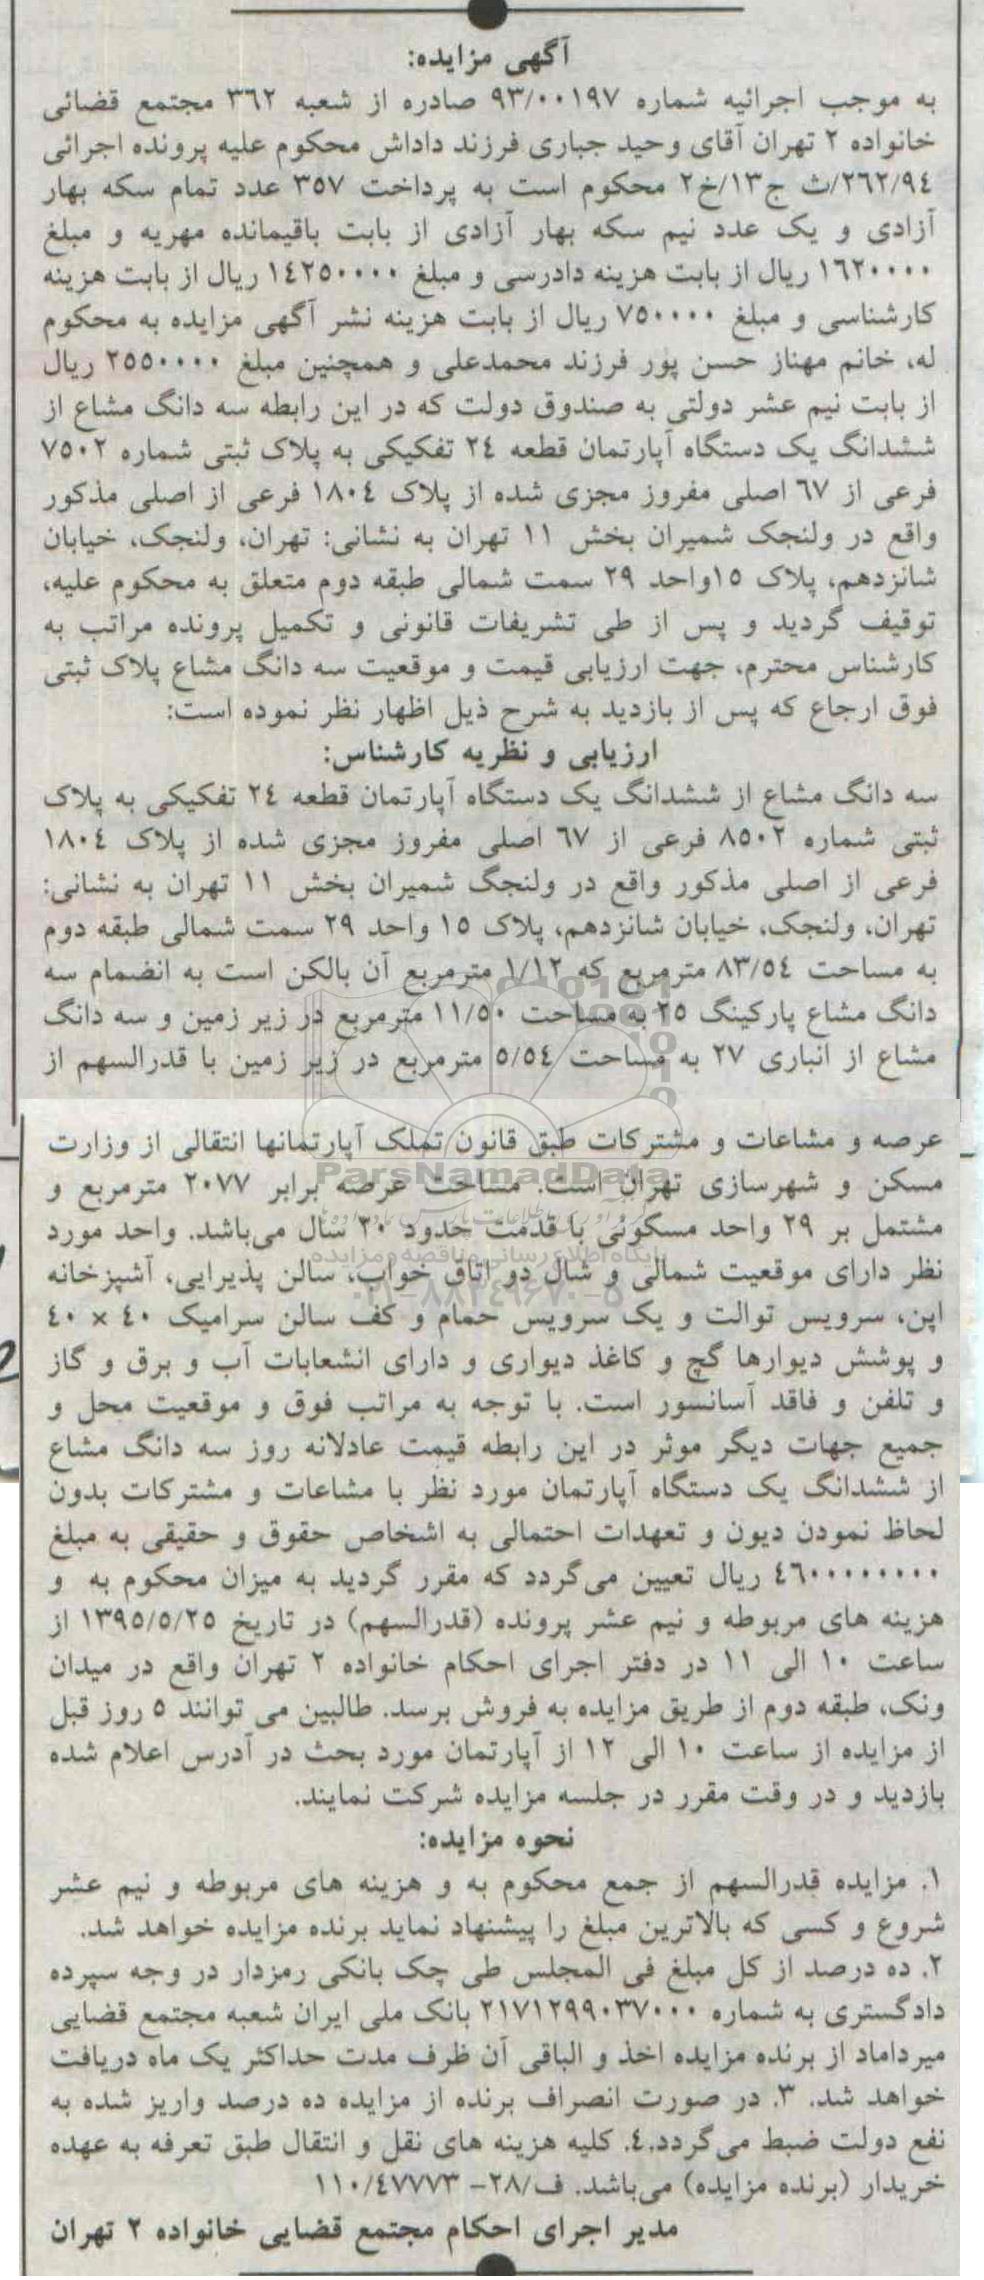 آگهی مزایده:
به موجب اجرائیه شماره ۹۳/۰۰۱۹۷ صادره از شعبه ۳٦۲ مجتمع قضائی
خانواده ۲ تهران آقای وحید جباری فرزند داداش محکوم علیه پرونده اجرائی
۲٦۲/۹٤/ث ج۱۳/خ۲ محکوم است به پرداخت ۳۵۷ عدد تمام سکه بهار
آزادی و یک عدد نیم سکه بهار آزادی از بابت باقیمانده مهریه و مبلغ
۱٦۲۰۰۰۰ ریال از بابت هزینه دادرسی و مبلغ ۱٤۲۵۰۰۰۰ ریال از بابت هزینه
کارشناسی و مبلغ ۷۵۰۰۰۰ ریال از بابت هزینه نشر آگهی مزایده به محکوم
له، خانم مهناز حسن پور فرزند محمدعلی و همچنین مبلغ ۲۵۵۰۰۰۰ ریال
از بابت نیم عشر دولتی به صندوق دولت که در این رابطه سه دانگ مشاع از
ششدانگ یک دستگاه آپارتمان قطعه ۲٤ تفکیکی به پلاک ثبتی شماره ۷۵۰۲
فرعی از ٦۷ اصلی مفروز مجزی شده از پلاک ۱۸۰٤ فرعی از اصلی مذکور
واقع در ولنجک شمیران بخش ۱۱ تهران به نشانی: تهران، ولنجک، خیابان
شانزدهم، پلاک ۱۵واحد ۲۹ سمت شمالی طبقه دوم متعلق به محکوم علیه،
توقیف گردید و پس از طی تشریفات قانونی و تکمیل پرونده مراتب به
کارشناس محترم، جهت ارزیابی قیمت و موقعیت سه دانگ مشاع پلاک ثبتی
فوق ارجاع که پس از بازدید به شرح ذیل اظهار نظر نموده است:
ارزیابی و نظریه کارشناس:
سه دانگ مشاع از ششدانگ یک دستگاه آپارتمان قطعه ۲٤ تفکیکی به پلاک
ثبتی شماره ۸۵۰۲ فرعی از ٦۷ اصلی مفروز مجزی شده از پلاک ۱۸۰٤
فرعی از اصلی مذکور واقع در ولنجگ شمیران بخش ۱۱ تهران به نشانی:
تهران، ولنجک، خیابان شانزدهم، پلاک ۱۵ واحد ۲۹ سمت شمالی طبقه دوم
به مساحت ۸۳/۵٤ مترمربع که ۱/۱۲ مترمربع آن بالکن است به انضمام سه
دانگ مشاع پارکینگ ۲۵ به مساحت ۱۱/۵۰ مترمربع در زیر زمین و سه دانگ
مشاع از انباری ۲۷ به مساحت ۵/۵٤ مترمربع در زیر زمین با قدرالسهم از
عرصه و مشاعات و مشترکات طبق قانون تملک آپارتمانها انتقالی از وزارت
ParsNamadData
مسکن و شهرسازی تهران است. مساحت عرصه برابر ۲۰۷۷ مترمربع و
مشتمل بر ۲۹ واحد مسکونی با قدمت حدود ۲۰ سال می‌باشد. واحد مورد
پایگاه اطلاع رسانی مناقصه و مزایده
نظر دارای موقعیت شمالی و شال دو اتاق خواب، سالن پذیرایی، آشپزخانه
۰۲۱-۸۸۳٤۹۶۷۰-۵
اپن، سرویس توالت و یک سرویس حمام و کف سالن سرامیک ٤۰ × ٤۰
و پوشش دیوارها گچ و کاغذ دیواری و دارای انشعابات آب و برق و گاز
و تلفن و فاقد آسانسور است. با توجه به مراتب فوق و موقعیت محل و
جمیع جهات دیگر موثر در این رابطه قیمت عادلانه روز سه دانگ مشاع
از ششدانگ یک دستگاه آپارتمان مورد نظر با مشاعات و مشترکات بدون
لحاظ نمودن دیون و تعهدات احتمالی به اشخاص حقوق و حقیقی به مبلغ
٤٦۰۰۰۰۰۰۰۰ ریال تعیین می‌گردد که مقرر گردید به میزان محکوم به و
هزینه های مربوطه و نیم عشر پرونده (قدرالسهم) در تاریخ ۱۳۹۵/۵/۲۵ از
ساعت ۱۰ الی ۱۱ در دفتر اجرای احکام خانواده ۲ تهران واقع در میدان
ونک، طبقه دوم از طریق مزایده به فروش برسد. طالبین می توانند ۵ روز قبل
از مزایده از ساعت ۱۰ الی ۱۲ از آپارتمان مورد بحث در آدرس اعلام شده
بازدید و در وقت مقرر در جلسه مزایده شرکت نمایند.
نحوه مزایده:
۱. مزایده قدرالسهم از جمع محکوم به و هزینه های مربوطه و نیم عشر
شروع و کسی که بالاترین مبلغ را پیشنهاد نماید برنده مزایده خواهد شد.
۲. ده درصد از کل مبلغ فی المجلس طی چک بانکی رمزدار در وجه سپرده
دادگستری به شماره ۲۱۷۱۲۹۹۰۳۷۰۰۰ بانک ملی ایران شعبه مجتمع قضایی
میرداماد از برنده مزایده اخذ و الباقی آن ظرف مدت حداکثر یک ماه دریافت
خواهد شد. ۳. در صورت انصراف برنده از مزایده ده درصد واریز شده به
نفع دولت ضبط می‌گردد.٤. کلیه هزینه های نقل و انتقال طبق تعرفه به عهده
خریدار (برنده مزایده) می‌باشد. ف/۲۸- ۱۱۰/٤۷۷۷۳
مدیر اجرای احکام مجتمع قضایی خانواده ۲ تهران